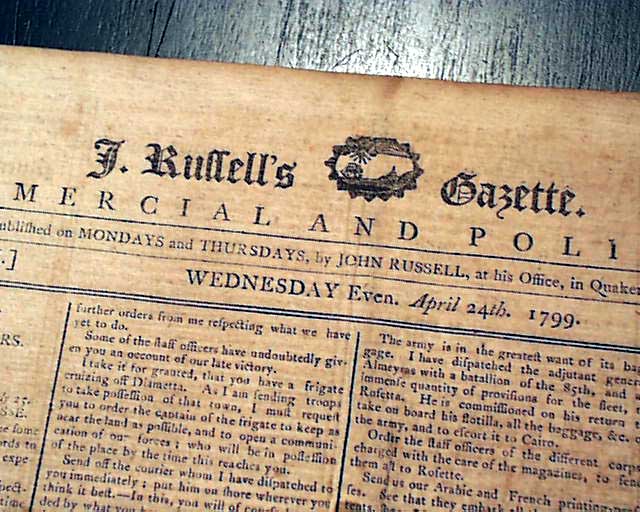 J. Ruſſell's Gazette.
MERCIAL AND POLI
ubliſhed on MONDAYS and THURSDAYS, by JOHN RUSSELL, at his Office, in Quaker
.]
WEDNESDAY Even. April 24th. 1799.
RS.
ly 25.
SE.
ſome
ords to
expe
pect-
time
further orders from me reſpecting what we have
yet to do.
Some of the ſtaff officers have undoubtedly giv-
en you an account of our late victory.
I take it for granted, that you have a frigate
cruizing off Diametta. As I am ſending troops
to take poſſeſſion of that town, I muſt requeſt
you to order the captain of the frigate to keep as
near the land as poſſible, and to open a communi-
cation of our forces; who will be in poſſeſſion
of the place by the time this reaches you.
Send off the courier whom I have diſpatched to
you immediately; put him on ſhore wherever you
think it beſt.—In this, you will of
ded by what you
The army is in the greateſt want of its ba
gage. I have diſpatched the adjutant gene
Almeyras with a batallion of the 85th, and
immenſe quantity of proviſions for the fleet,
Roſetta. He is commiſſioned on his return
take on board his flotilla, all the baggage, &c.
the army, and to eſcort it to Cairo.
Order the ſtaff officers of the different corp
charged with the care of the magazines, to ſend
them all to Roſette.
Send us our Arabic and French printing-
ſes. See that they embark all the
tents,